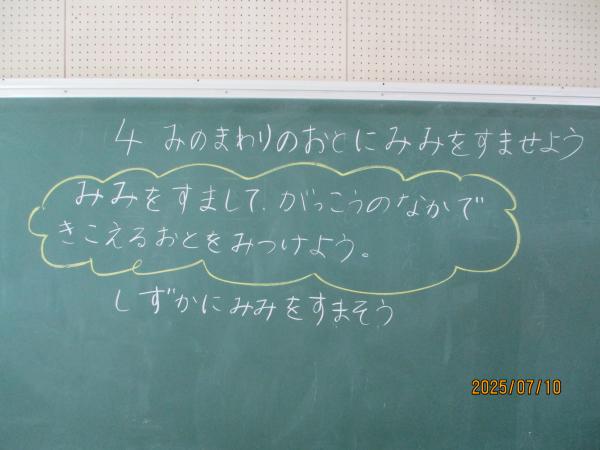 4 みのまわりのおとにみみをすませよう
みみをすまして、がっこうのなかで
きこえるおとをみつけよう。
しずかにみみをすまそう
2025/07/10